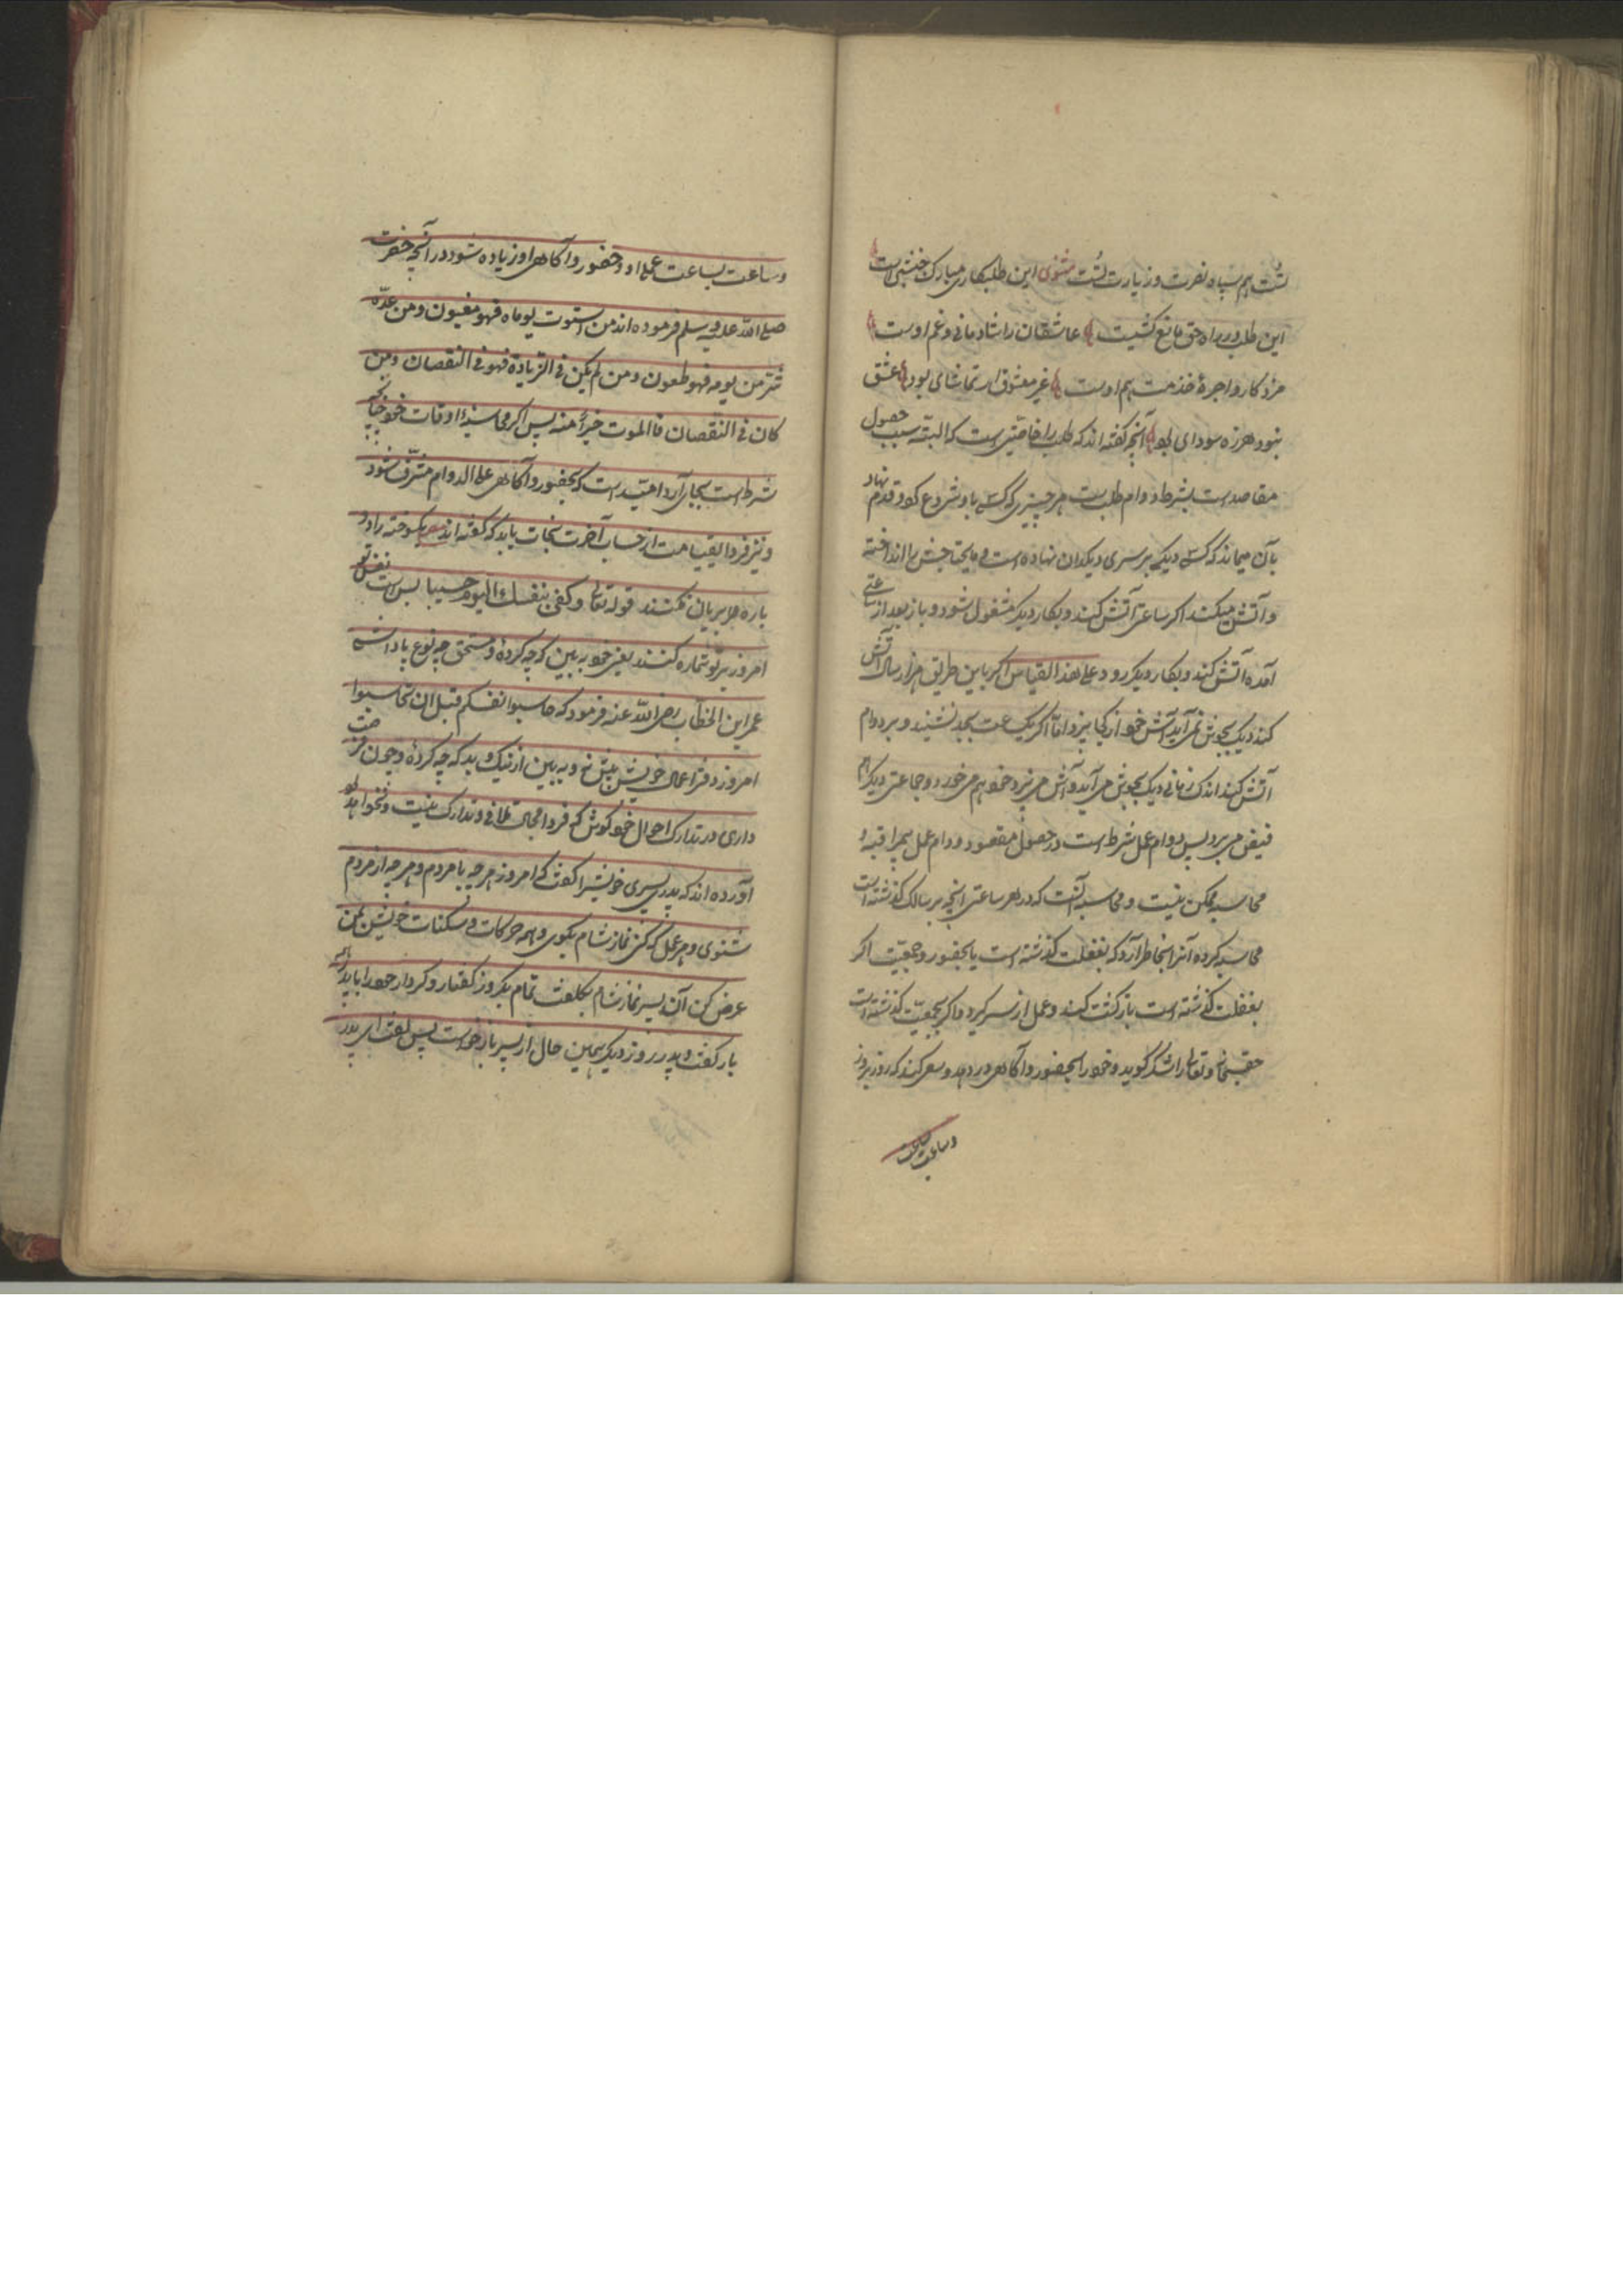 تست هم سپاه نصرت و زیارت تست مثنوی این طلبکاری مبارک جنبشی است
این طلب در راه حق مانع کشیست عاشقان را شادمانی و غم اوست
مزد کار و اجرة خدمت هم اوست غیر معشوق ار تماشای بود عشق
نبود هرزه سودای بود آنچه گفته اند که طلب را خاصّتی است که البتّه سبب حصول
مقاصد است بشرط دوام طلب است هر چیزی که کسے باو شروع کرد و قدم نهاد
بآن میماند که کسے دیکے بر سری دیکدان نهاده است و مایحتاجش را انداخته
و آتش میکند اگر ساعتی آتش کند و بکار دیگر مشغول شود و باز بعد از ساعتی
آمده آتش کند و بکار دیگر رود و علی هذا القیاس اگر باین طریق هزار سال آتش
کند دیک بجوش نمی آید آتش خود از کجا پزد امّا اگر یک ساعت بجد نشیند و بر دوام
آتش کند اندک زمانی دیک بجوش می آید و آش می پزد خود هم می خورد و جماعتی دیگر هم
فیض می برد پس دوام عمل شرط است در حصول مقصود و دوام عمل بمراقبه و
محاسبه ممکن نیست و محاسبه آنست که در هر ساعتی آنچه بر سالک گذشته است
محاسبه کرده آنرا بخاطر آرد که بغفلت گذشته است یا بحضور و جمعیّت اگر
بغفلت گذشته است بازگشت کند و عمل از سر گیرد و اگر بجمعیّت گذشته است
حقسبحانه و تعالی را شکر گوید و خود را بحضور و آگاهی در دهد و سعی کند که روز بروز
وساعت بساعت
وساعت بساعت عمل او و حضور و آگاهی او زیاده شود در آنچه حضرت
صلی اللّه علیه و سلم فرموده اند من استوت یوماه فهو مغبون و من غدّه
شر من یومه فهو ملعون و من لم یکن فی الزیادة فهو فی النقصان و من
کان فی النقصان فالموت خیر منه پس اگر محاسبۀ اوقات خود چنانچه
شرط است بجای آرد امیّد است که بحضور و آگاهی علی الدوام مشرّف شود
و نیز فردا بقیامت از حساب آخرت نجات یابد که گفته اند یکسوخته را دو
باره هر بریان نکنند قوله تعالی و کفی بنفسک الیوم حسیبا بس است نفس تو
امروز بر تو شماره کننده یعنی خود به بین که چه کردۀ و مستحق چه نوع پاداشے
عمر ابن الخطّاب رضی اللّه عنه فرمود که حاسبوا انفسکم قبل ان تحاسبوا
امروز دفتر اعمال خویش پیش نه و به بین از نیک و بد که چه کردۀ و چون فرصت
داری در تدارک احوال خود کوش که فردا مجال تلافی و تدارک نیست و نخواهد بود
آورده اند که پدری پسری خویش را گفت که امروز هر چه با مردم و هر چه از مردم
شنوی و هر عمل که کنی نماز شام بگوی و همه حرکات و سکنات خویش بمن
عرض کن آن پسر نماز شام بکلفت تمام یکروز گفتار و کردار خود را با پدر
باز گفت پدر روز دیگر همین حال از پسر باز خواست پس گفت ای پدر